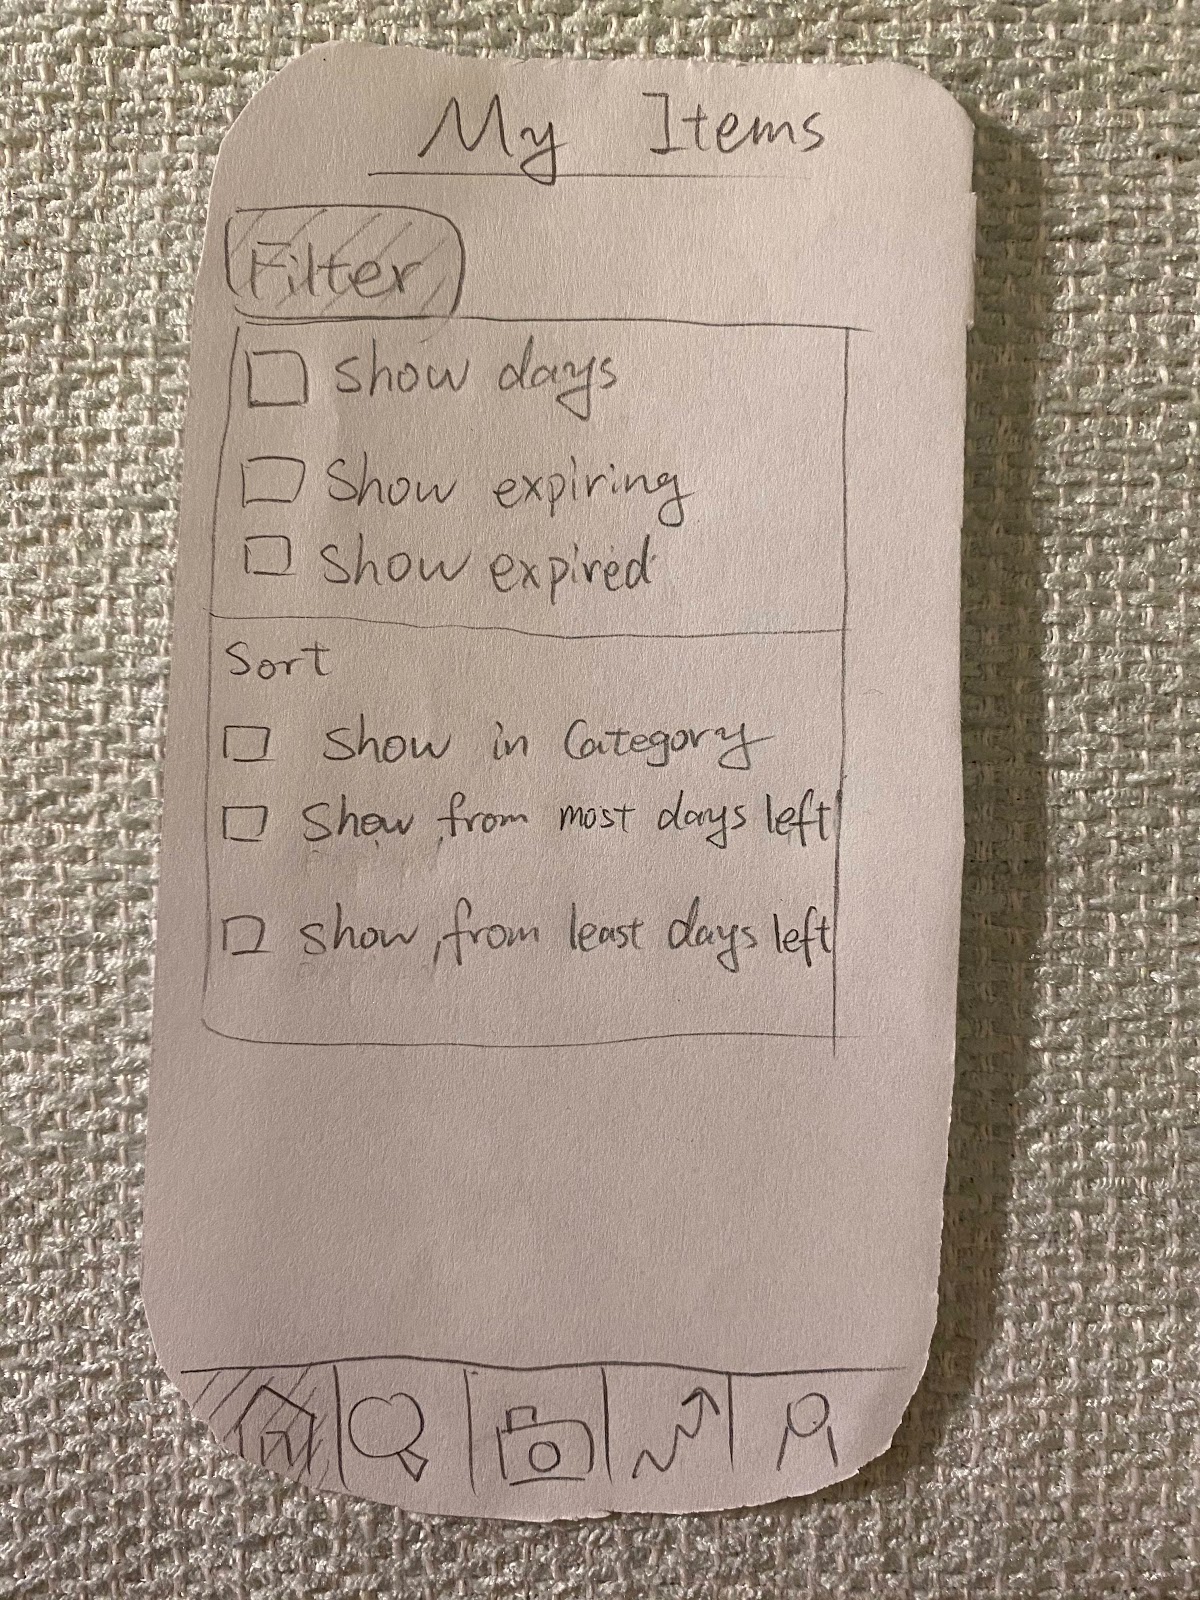 My Items
Filter
Show days
Show expiring
Show expired
Sort
Show in Category
Show from most days left
Show from least days left